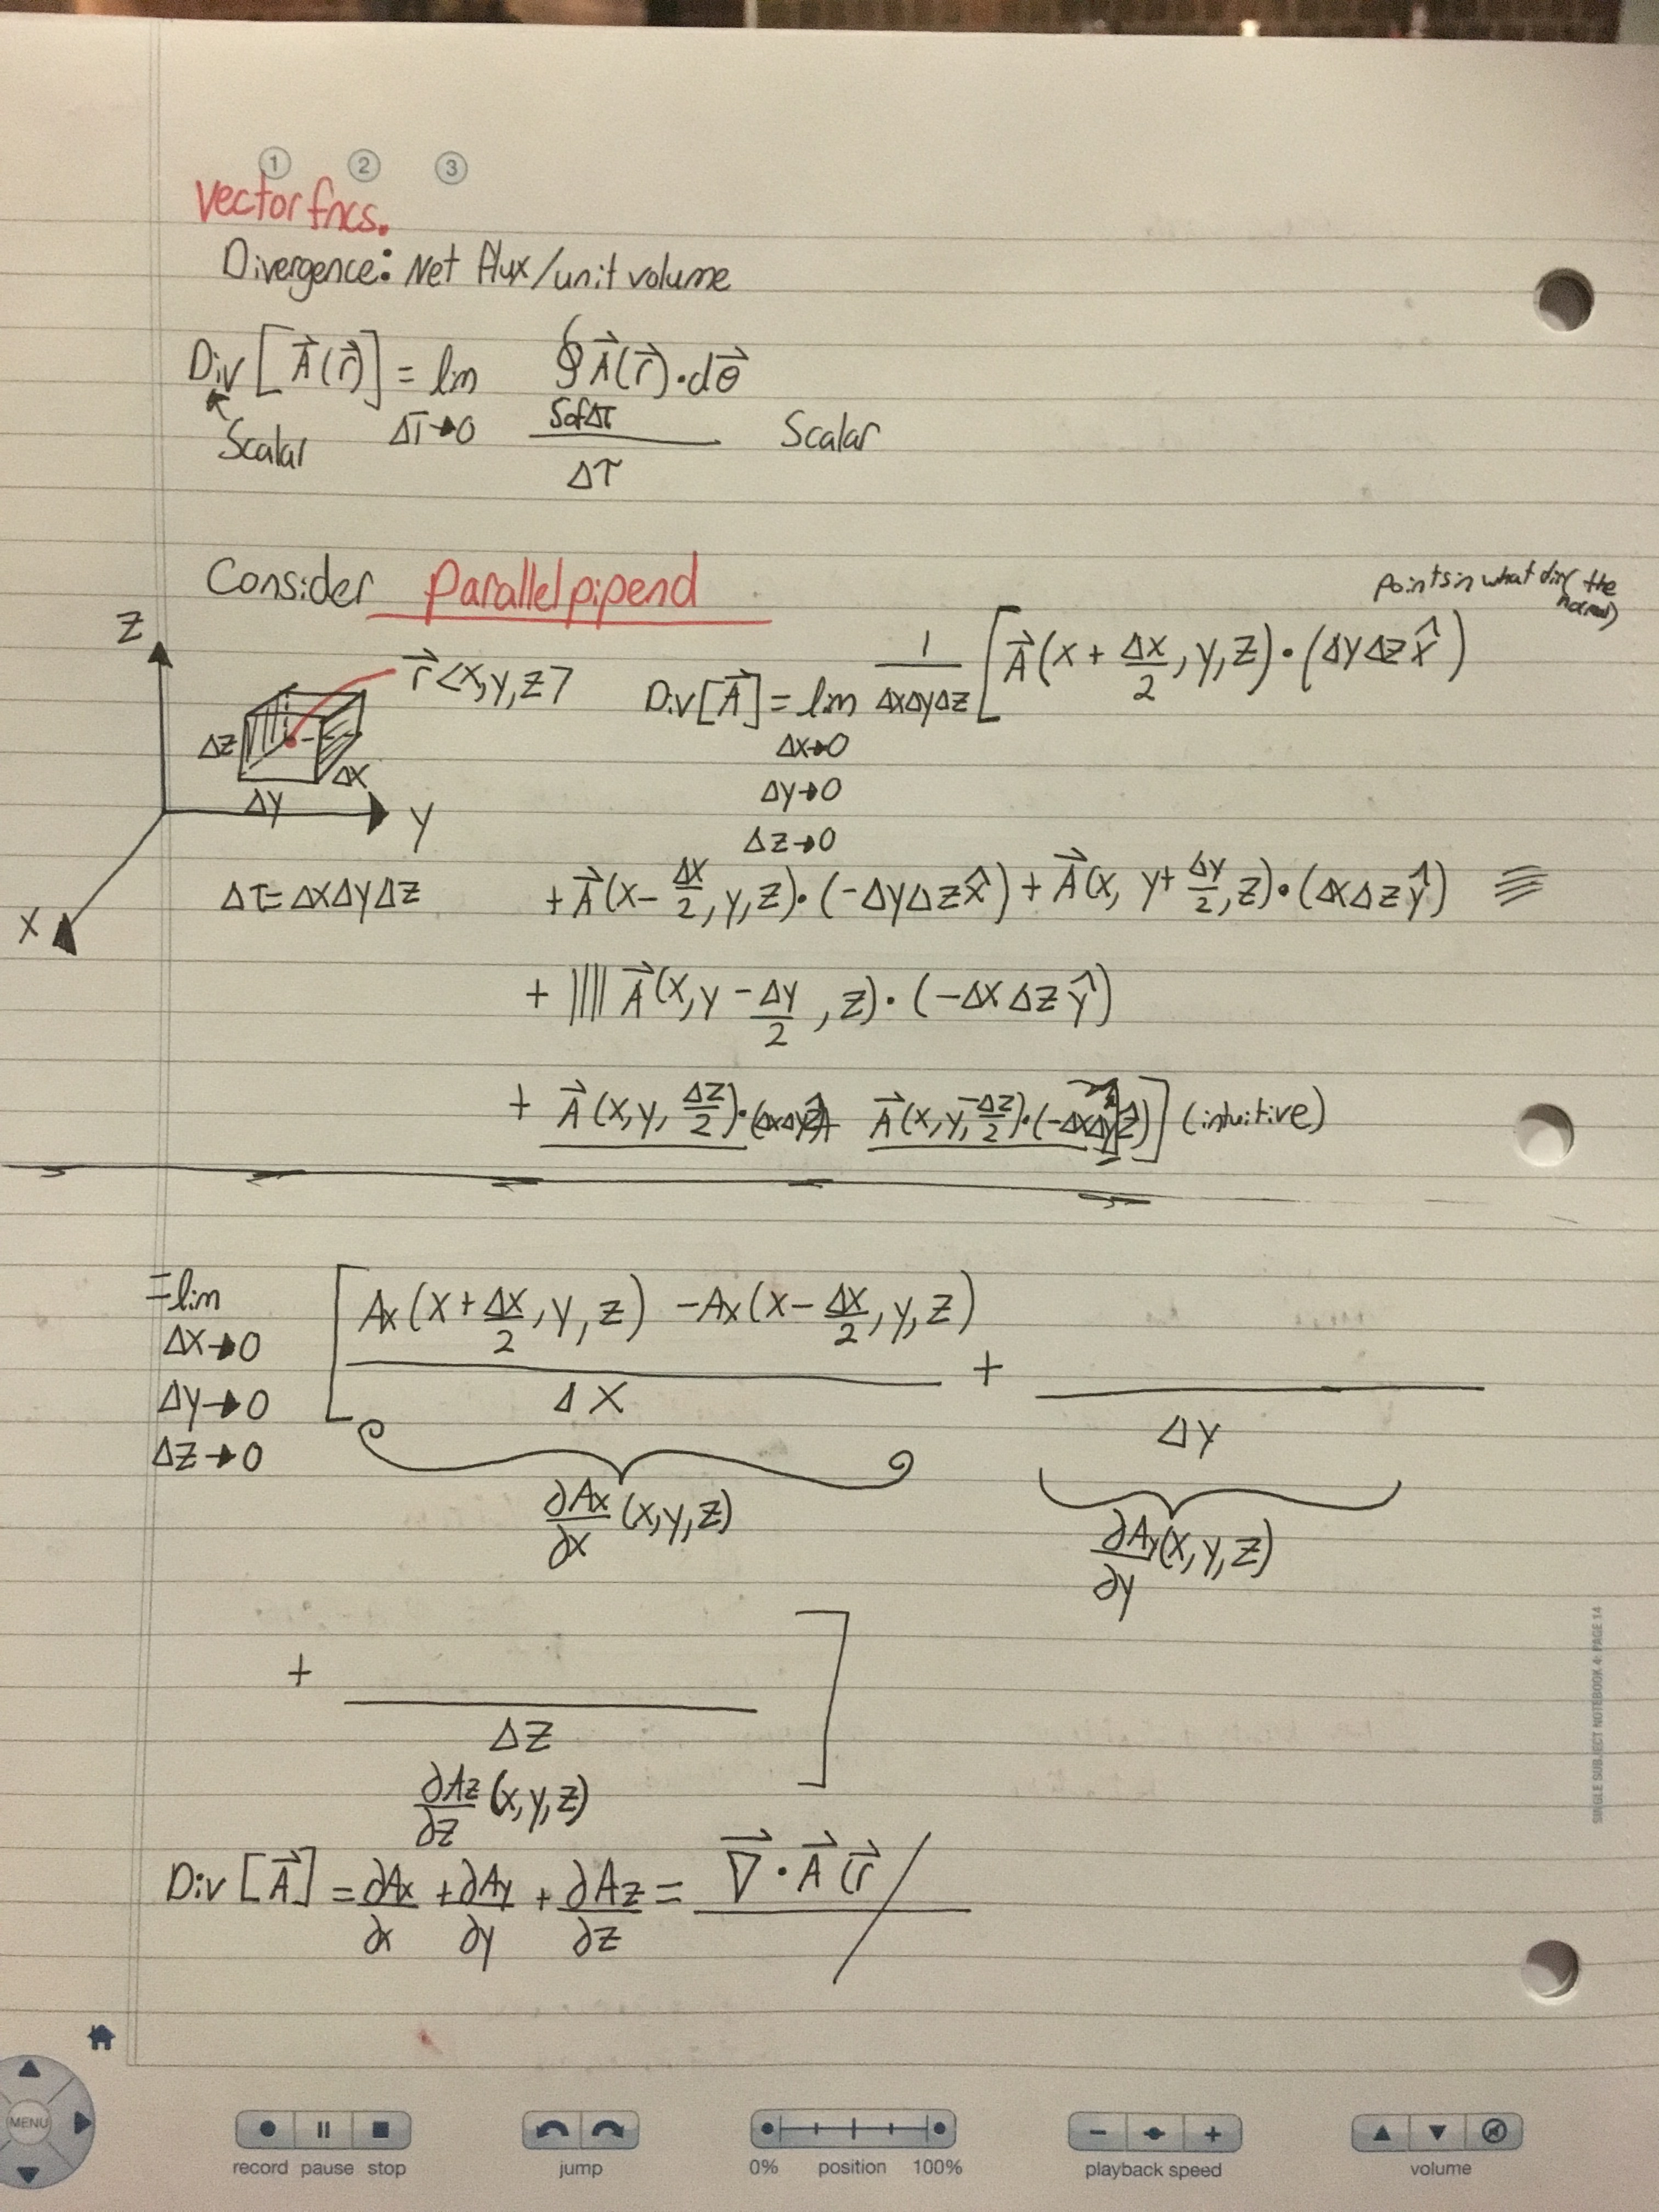 1 2 3
Vector fncs.
Divergence: Net flux/unit volume
Div [A⃗(r⃗)] = lim ∮A⃗(r⃗)·dσ⃗
Δτ→0 SofΔτ
Scalar Δτ Scalar
Consider Parallelpipend
points in what dir( the normal)
Z
r⃗<x,y,z>
Div[A⃗] = lim 1/ΔxΔyΔz [A⃗(x + Δx/2, y, z)·(ΔyΔz x̂)
Δx→0
Δy→0
Δz→0
Δz
Δx
Δy
Y
X
Δτ=ΔxΔyΔz
+A⃗(x-Δx/2, y, z)·(-ΔyΔz x̂) + A⃗(x, y+Δy/2, z)·(ΔxΔz ŷ)
+ A⃗(x, y-Δy/2, z)·(-ΔxΔz ŷ)
+ A⃗(x, y, Δz/2)·(ΔxΔyẑ)+ A⃗(x, y, -Δz/2)·(-ΔxΔyẑ)] (intuitive)
=lim [Ax(x+Δx/2, y, z) -Ax(x-Δx/2, y, z)
Δx→0
Δy→0
Δz→0
Δx + Δy
∂Ax/∂x (x,y,z) ∂Ay/∂y (x,y,z)
+ ]
Δz
∂Az/∂z (x,y,z)
Div [A⃗] = ∂Ax/∂x + ∂Ay/∂y + ∂Az/∂z = ∇⃗·A⃗(r⃗
SINGLE SUBJECT NOTEBOOK 4: PAGE 14
MENU
record pause stop
jump
0% position 100%
playback speed
volume